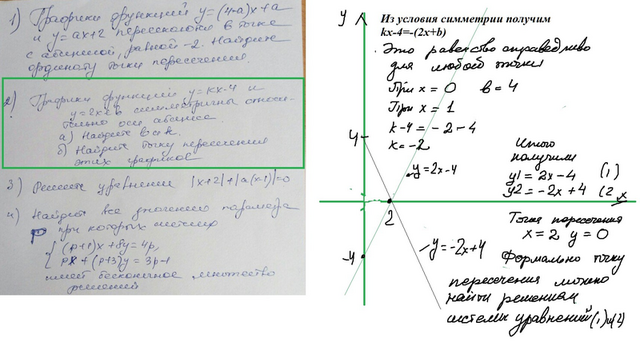 1) Графики функций y=(4-a)x+a
и y=ax+2 пересекаются в точке
с абсциссой, равной -2. Найдите
ординату точки пересечения.
2) Графики функций y=kx-4 и
y=2x+b симметричны относи-
тельно оси абсцисс.
а) Найдите b и k.
б) Найдите точку пересечения
этих графиков
3) Решить уравнение |x+2|+|a(x-1)|=0
4) Найдите все значения параметра
p при которых система
(p+1)x+8y=4p,
px+(p+3)y=3p-1
имеет бесконечное множество
решений
y
Из условия симметрии получим
kx-4=-(2x+b)
Это равенство справедливо
для любой точки
При x=0 b=4
При x=1
k-4=-2-4
k=-2
4
y=2x-4
Итого
получим
y1=2x-4 (1)
y2=-2x+4 (2
x
2
Точка пересечения
x=2 y=0
-4
y=-2x+4
Формально точку
пересечения можно
найти решением
системы уравнений (1) и (2)